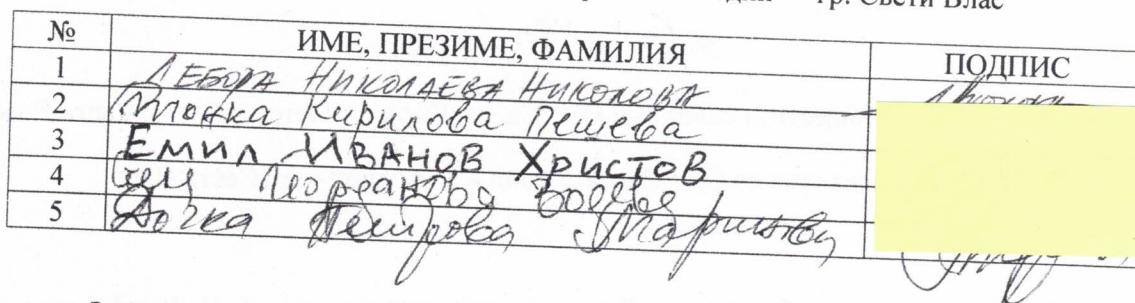 гр. Свети Влас
№ ИМЕ, ПРЕЗИМЕ, ФАМИЛИЯ ПОДПИС
1 ДЕБОРА НИКОЛАЕВА НИКОЛОВА
2 Тонка Кирилова Пешева
3 ЕМИЛ ИВАНОВ ХРИСТОВ
4 Йорданова
5 Дочка Петрова Маринова